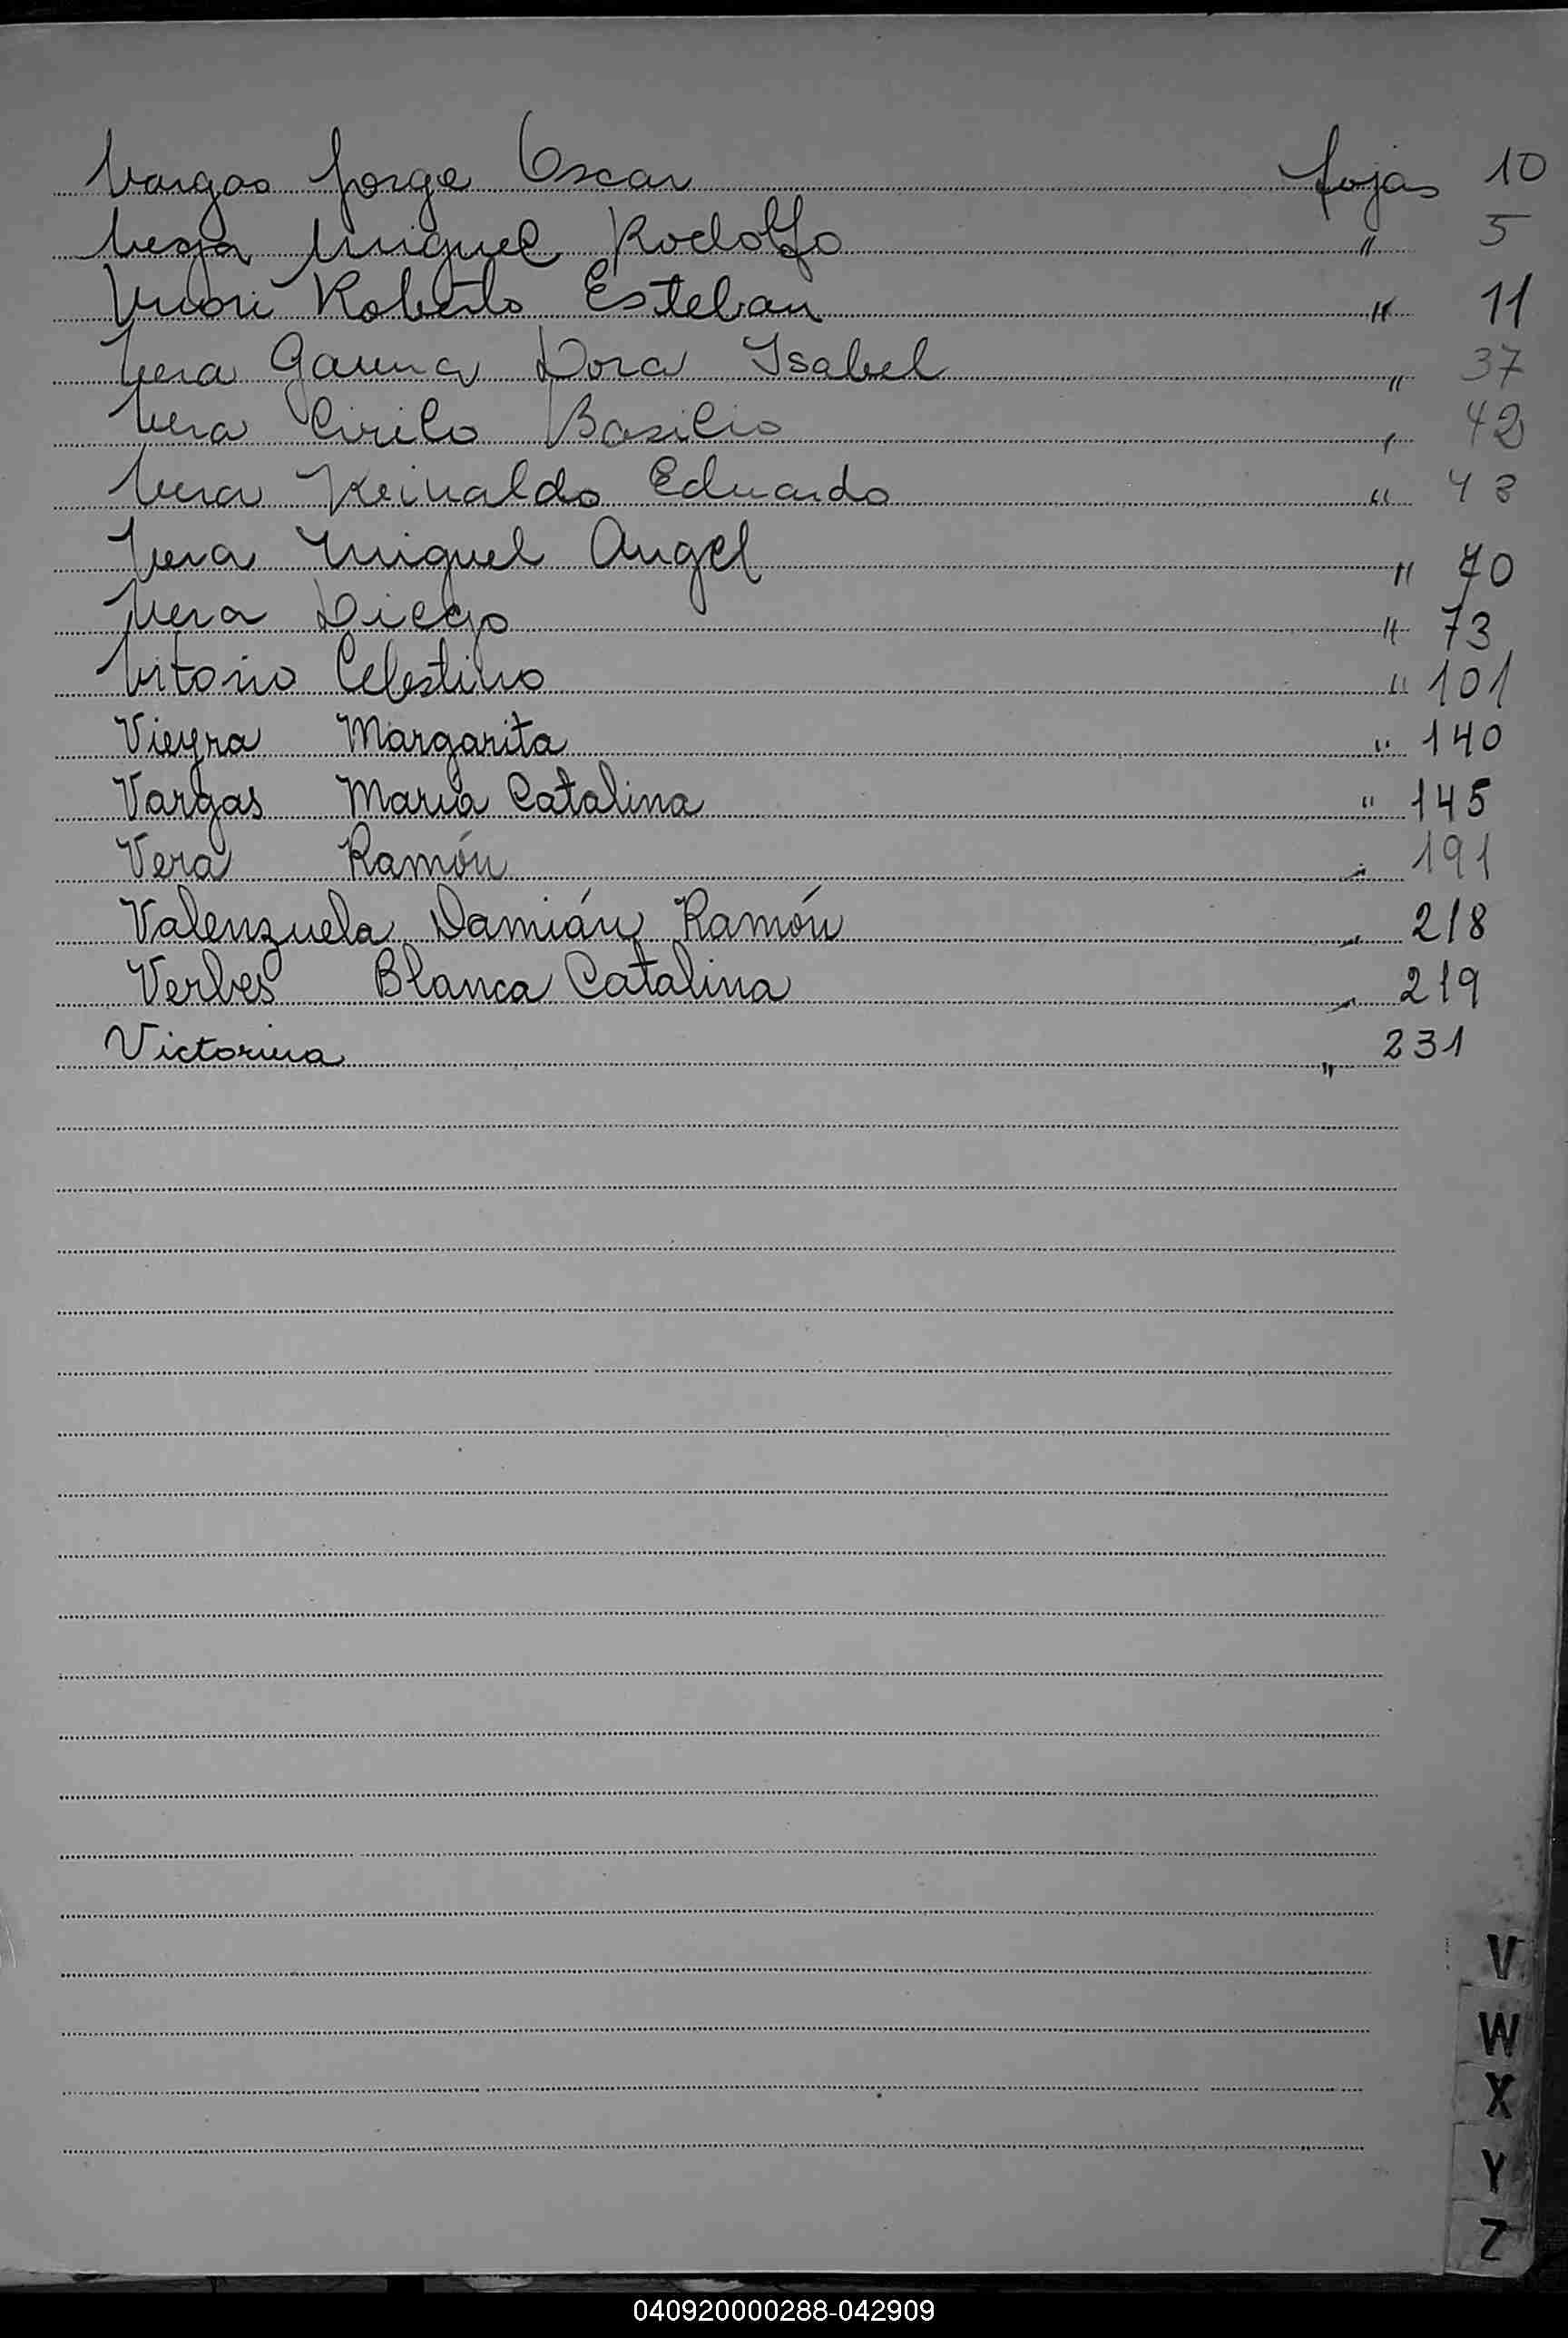 Vargas Jorge Oscar fojas 10
Vega Miguel Rodolfo " 5
Roberto Esteban " 11
Vera Gauna Dora Isabel " 37
Vera Cirilo Basilio " 42
Vera Reinaldo Eduardo " 43
Vera Miguel Angel " 70
Vera Diego " 73
Vitorio Celestino " 101
Vieyra Margarita " 140
Vargas Maria Catalina " 145
Vera Ramón " 191
Valenzuela Damián Ramón " 218
Verbes Blanca Catalina " 219
Victorina " 231
V
W
X
Y
Z
040920000288-042909